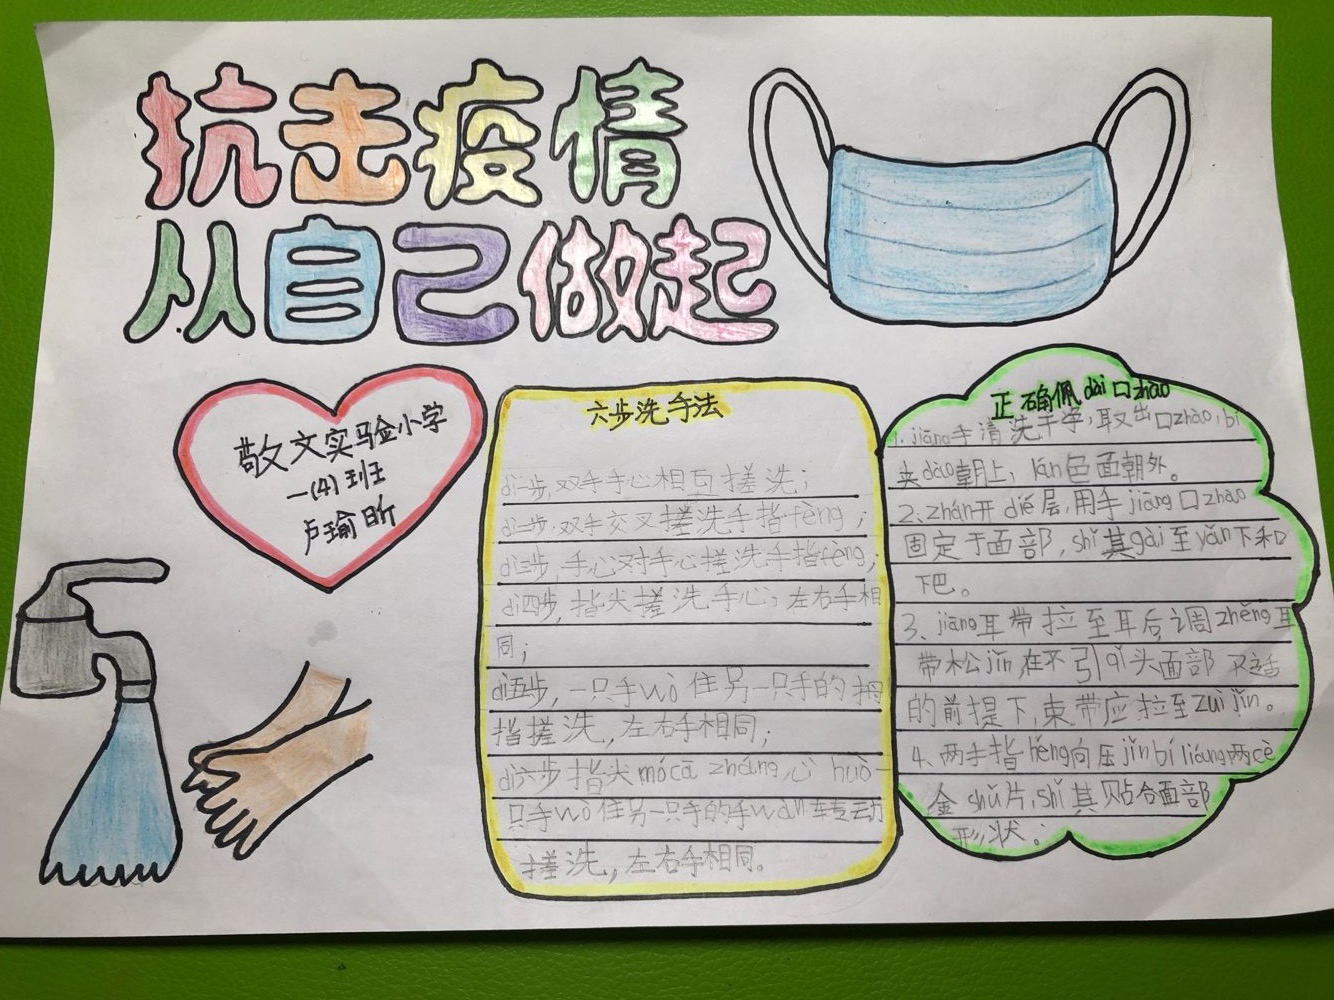 抗击疫情
从自己做起
敬文实验小学
一(4)班
卢瑜昕
六步洗手法
dì一步,双手手心相互搓洗;
dì二步,双手交叉搓洗手指fèng;
dì三步,手心对手心搓洗手指fèng;
dì四步,指尖搓洗手心,左右手相
同;
dì五步,一只手wò住另一只手的拇
指搓洗,左右手相同;
dì六步指尖mócā zhǎng心huò一
只手wò住另一只手的手wàn转动
搓洗,左右手相同。
正确佩dài口zhào
1.jiāng手清洗干净,取出口zhào,bí
夹dào朝上,lán色面朝外。
2、zhǎn开dié层,用手jiāng口zhào
固定于面部,shǐ其gài至yǎn下和
下巴。
3、jiāng耳带拉至耳后,调zhěng耳
带松jǐn,在不引qǐ头面部不适
的前提下,束带应拉至zuì jǐn。
4、两手指héng向压jǐn bí liáng两cè
金shǔ片,shǐ其贴合面部
形状。